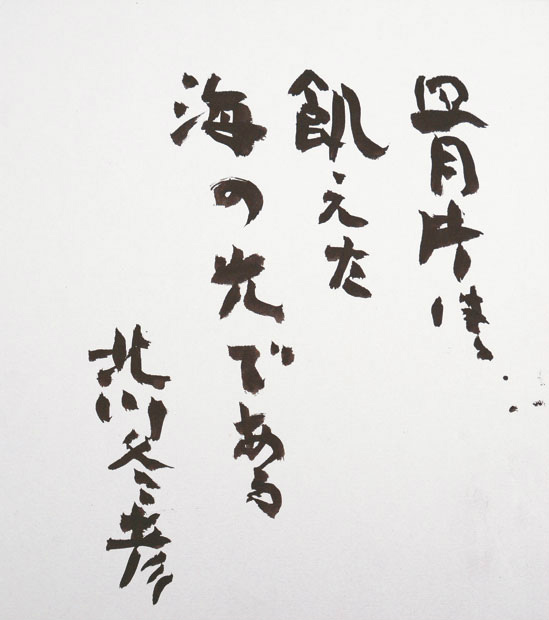 骨片は
飢えた
海の光である
北川冬彦